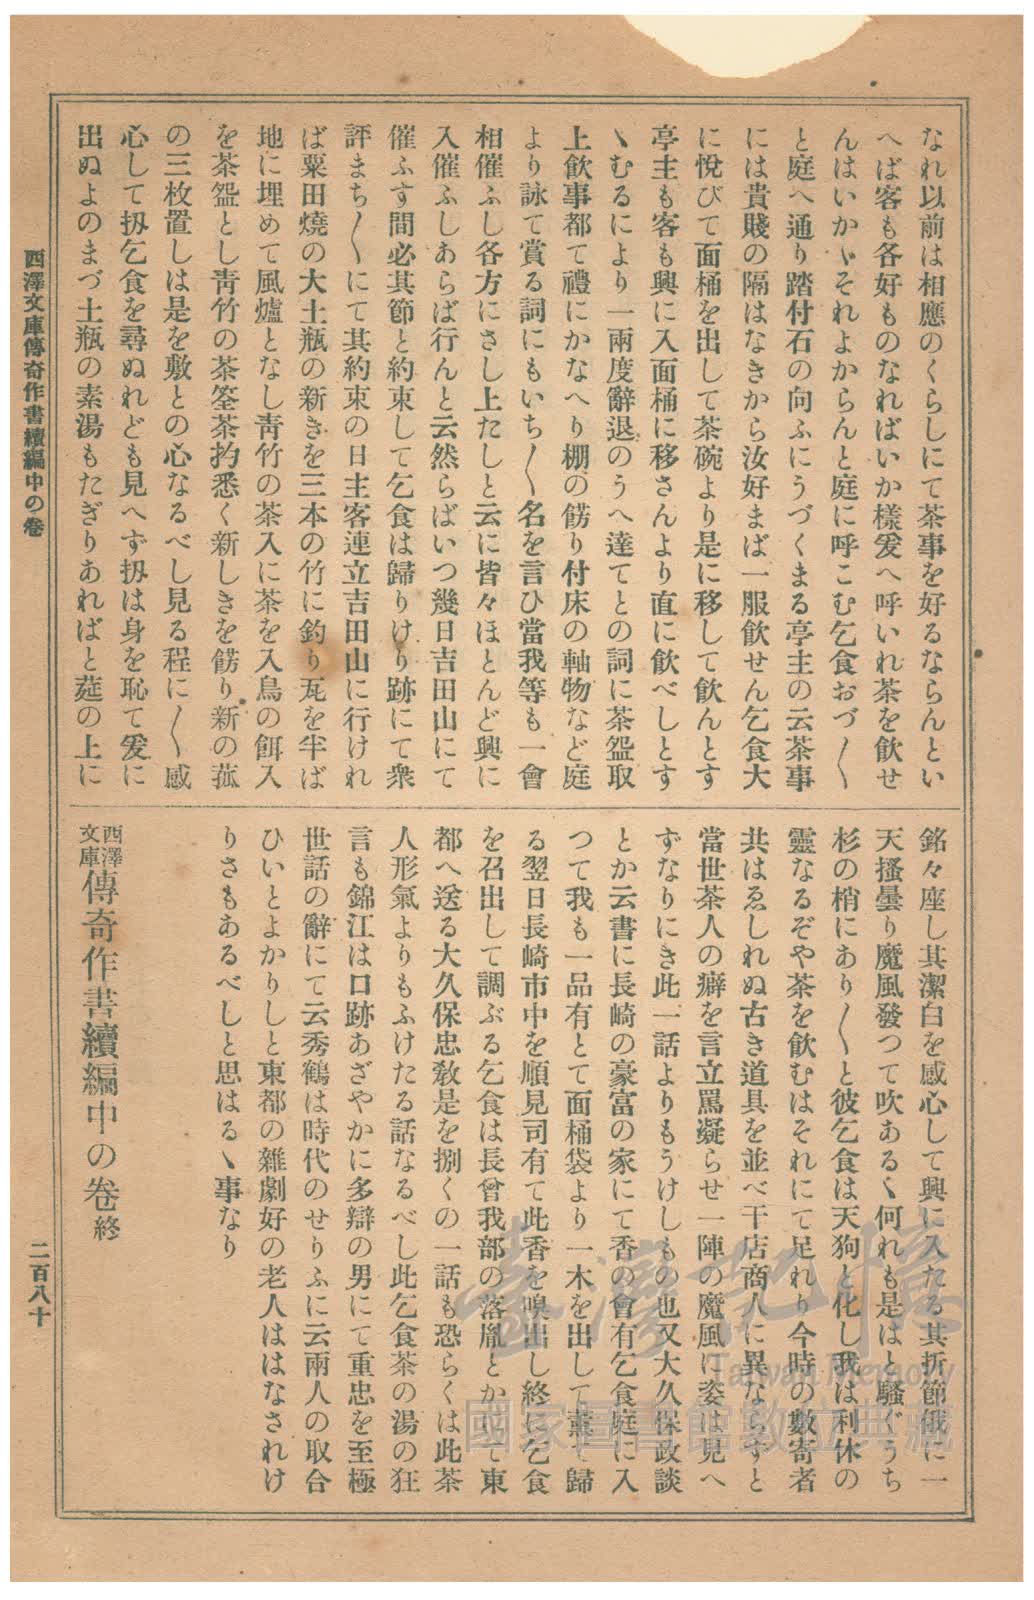 なれ以前は相應のくらしにて茶事を好るならんとい
へば客も各好ものなればいか樣爰へ呼いれ茶を飮せ
んはいかゞそれよからんと庭に呼こむ乞食おづ〳〵
と庭へ通り踏付石の向ふにうづくまる亭主の云茶事
には貴賤の隔はなきから汝好まば一服飮せん乞食大
に悅びて面桶を出して茶碗より是に移して飮んとす
亭主も客も興に入面桶に移さんより直に飮べしとす
ゝむるにより一兩度辭退のうへ達てとの詞に茶盌取
上飮事都て禮にかなへり棚の餝り付床の軸物など庭
より詠て賞る詞にもいち〳〵名を言ひ當我等も一會
相催ふし各方にさし上たしと云に皆々ほとんど興に
入催ふしあらば行んと云然らばいつ幾日吉田山にて
催ふす間必其節と約束して乞食は歸りけり跡にて衆
評まち〳〵にて其約束の日主客連立吉田山に行けれ
ば粟田燒の大土瓶の新きを三本の竹に釣り瓦を半ば
地に埋めて風爐となし靑竹の茶入に茶を入鳥の餌入
を茶盌とし靑竹の茶筌茶杓悉く新しきを餝り新の菰
の三枚置しは是を敷との心なるべし見る程に〳〵感
心して扨乞食を尋ぬれども見へず扨は身を恥て爰に
出ぬよのまづ土瓶の素湯もたぎりあればと莚の上に
銘々座し其潔白を感心して興に入たる其折節俄に一
天搔曇り魔風發つて吹あるく何れも是はと騷ぐうち
杉の梢にあり〳〵と彼乞食は天狗と化し我は利休の
靈なるぞや茶を飮むはそれにて足れり今時の數寄者
共はゑしれぬ古き道具を並べ干店商人に異ならずと
當世茶人の癖を言立罵凝らせ一陣の魔風に姿は見へ
ずなりにき此一話よりもうけしもの也又大久保政談
とか云書に長崎の豪富の家にて香の會有乞食庭に入
つて我も一品有とて面桶袋より一木を出して薰て歸
る翌日長崎市中を順見司有て此香を嗅出し終に乞食
を召出して調ぶる乞食は長曾我部の落胤とかいて東
都へ送る大久保忠敎是を捌くの一話も恐らくは此茶
人形氣よりもふけたる話なるべし此乞食茶の湯の狂
言も錦江は口跡あざやかに多辯の男にて重忠を至極
世話の辭にて云秀鶴は時代のせりふに云兩人の取合
ひいとよかりしと東都の雜劇好の老人ははなされけ
りさもあるべしと思はるゝ事なり
西澤文庫 傳奇作書續編中の卷 終
西澤文庫傳奇作書續編中の卷
二百八十
臺灣記憶
Taiwan Memory
國家圖書館數位典藏